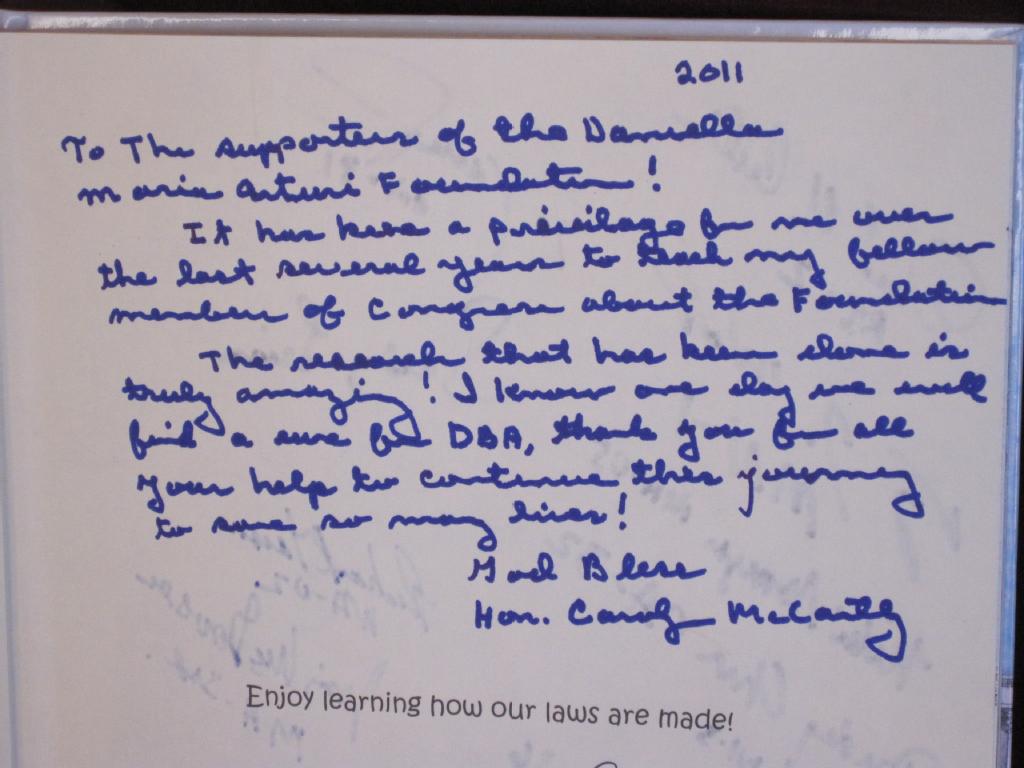 2011
To The supporters of the Daniella
Maria Arturi Foundation!
It has been a privilage for me over
the last several years to teach my fellow
members of Congress about the Foundation
The research that has been done is
truly amazing! I know one day we will
find a cure for DBA, thank you for all
your help to continue this journey
to save so many lives!
God Bless
Hon. Carolyn McCarthy
Enjoy learning how our laws are made!